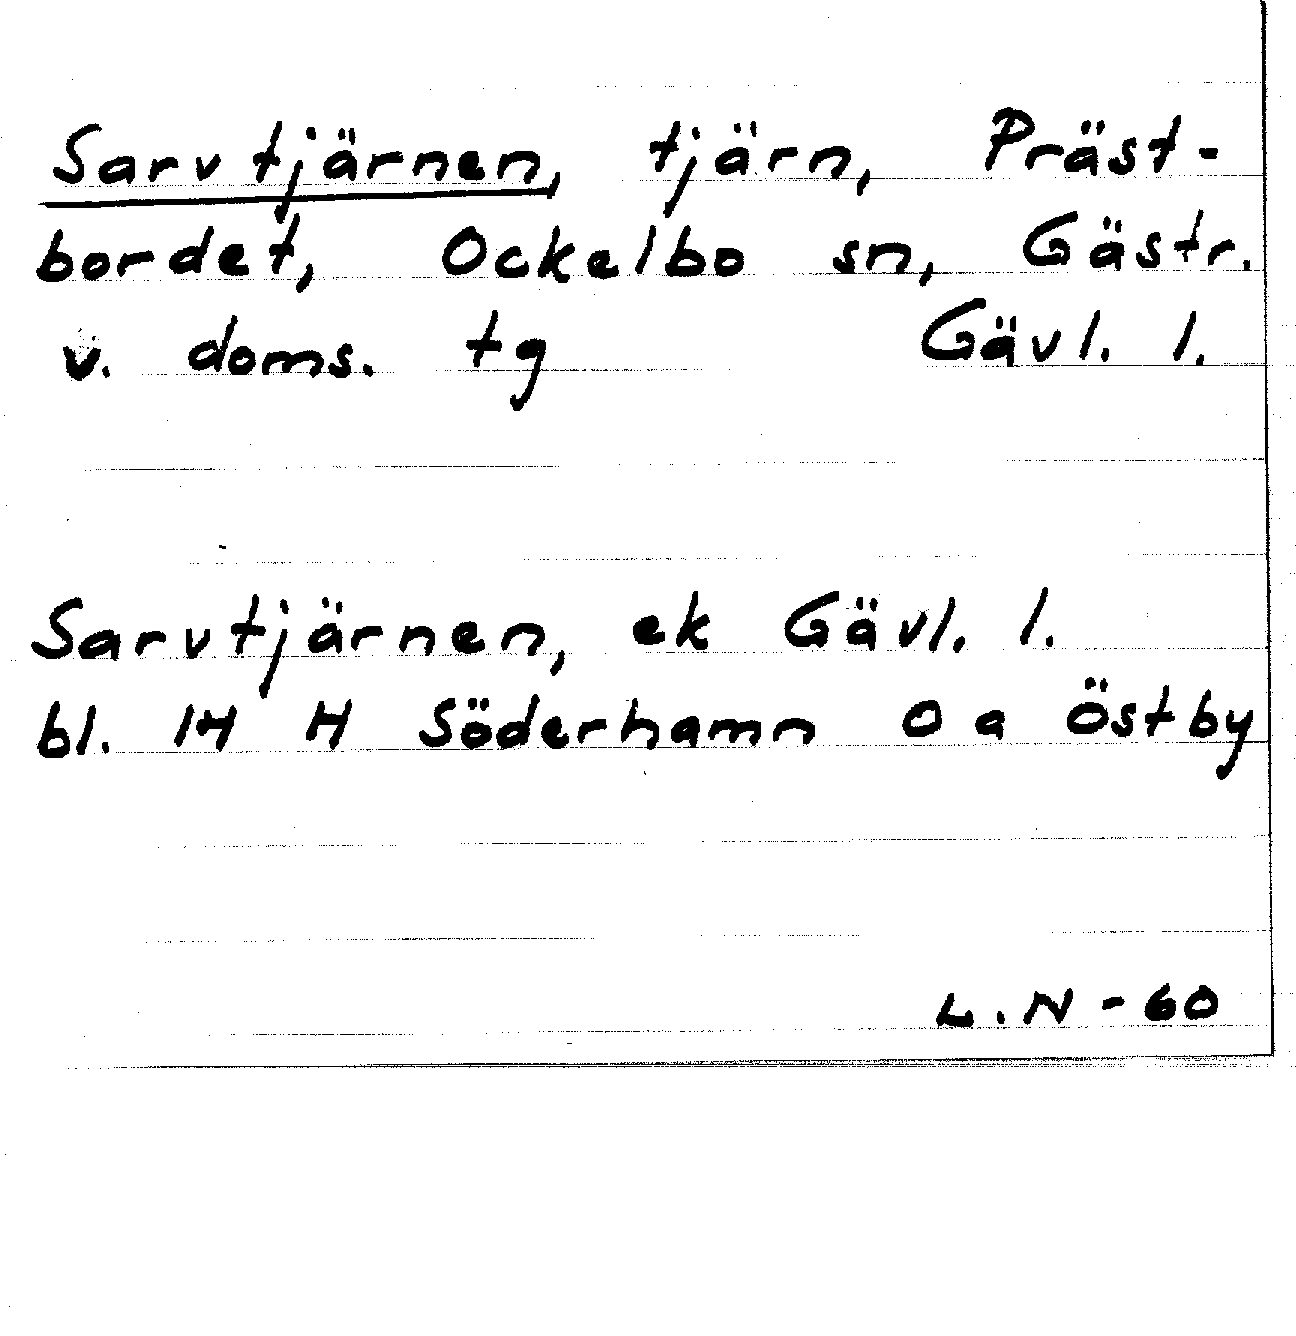 Sarvtjärnen, tjärn, Präst-
bordet, Ockelbo sn, Gästr.
v. doms. tg Gävl. l.
Sarvtjärnen, ek Gävl. l.
bl. 14 H Söderhamn O a Östby
L.N-60